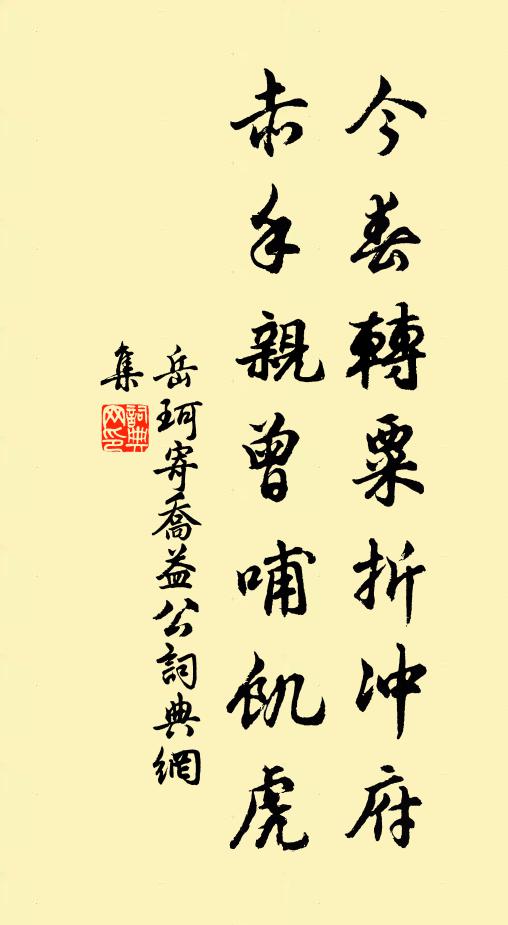 今春轉粟折冲府
赤手親曾哺飢虎
岳珂寄喬益公詞典網
集
詞典網印